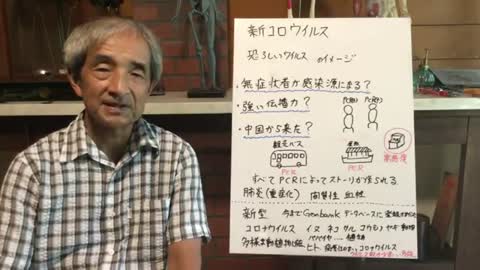 新コロウイルス
恐ろしいウイルス のイメージ
・無症状者が感染源になる？
・強い伝播力？
PCR(+) PCR(+)
・中国から来た？
観光バス
家族
PCR PCR
すべてPCRによってストーリが作られる
肺炎(重症化) 間質性 血栓
新型 今までGenbankデータベースに
コロナウイルス イヌ ネコ サル コウモリ ヤギ
多様な動植物に
ヒト コロナウイルス